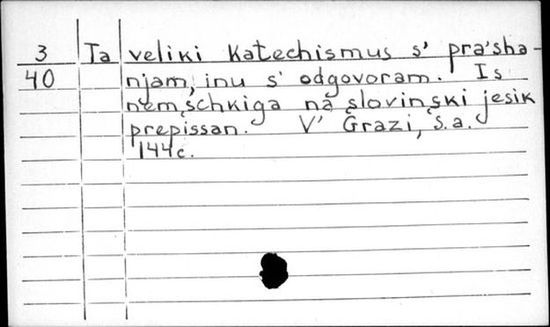 3 Ta veliki katechismus s' pra'sha-
40 njam, inu s' odgovoram. Is
nemschkiga na slovinski jesik
prepissan. V' Grazi, s.a.
144c.